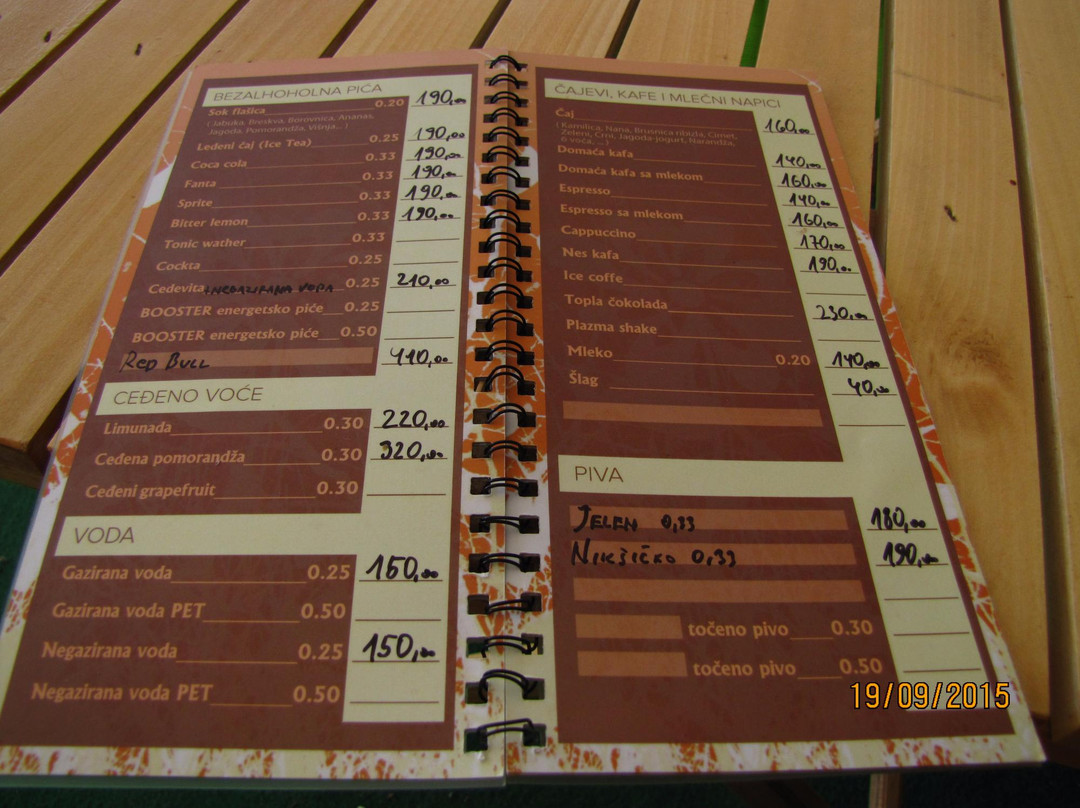 BEZALHOHOLNA PIĆA
Sok flašica 0.20 190,00
(Jabuka, Breskva, Borovnica, Ananas,
Jagoda, Pomorandža, Višnja... )
Ledeni čaj (Ice Tea) 0.25 190,00
Coca cola 0.33 190,00
Fanta 0.33 190,00
Sprite 0.33 190,00
Bitter lemon 0.33 190,00
Tonic wather 0.33
Cockta 0.25
Cedevita+NEGAZIRANA VODA 0.25 210,00
BOOSTER energetsko piće 0.25
BOOSTER energetsko piće 0.50
RED BULL 410,00
CEĐENO VOĆE
Limunada 0.30 220,00
Ceđena pomorandža 0.30 320,00
Ceđeni grapefruit 0.30
VODA
Gazirana voda 0.25 150,00
Gazirana voda PET 0.50
Negazirana voda 0.25 150,00
Negazirana voda PET 0.50
ČAJEVI, KAFE I MLEČNI NAPICI
Čaj 160,00
(Kamilica, Nana, Brusnica ribizla, Cimet,
Zeleni, Crni, Jagoda-jogurt, Narandža,
6 voća, ...)
Domaća kafa 140,00
Domaća kafa sa mlekom 160,00
Espresso 140,00
Espresso sa mlekom 160,00
Cappuccino 170,00
Nes kafa 190,00
Ice coffe
Topla čokolada 230,00
Plazma shake
Mleko 0.20 140,00
Šlag 40,00
PIVA
JELEN 0,33 180,00
NIKŠIĆKO 0,33 190,00
točeno pivo 0.30
točeno pivo 0.50
19/09/2015